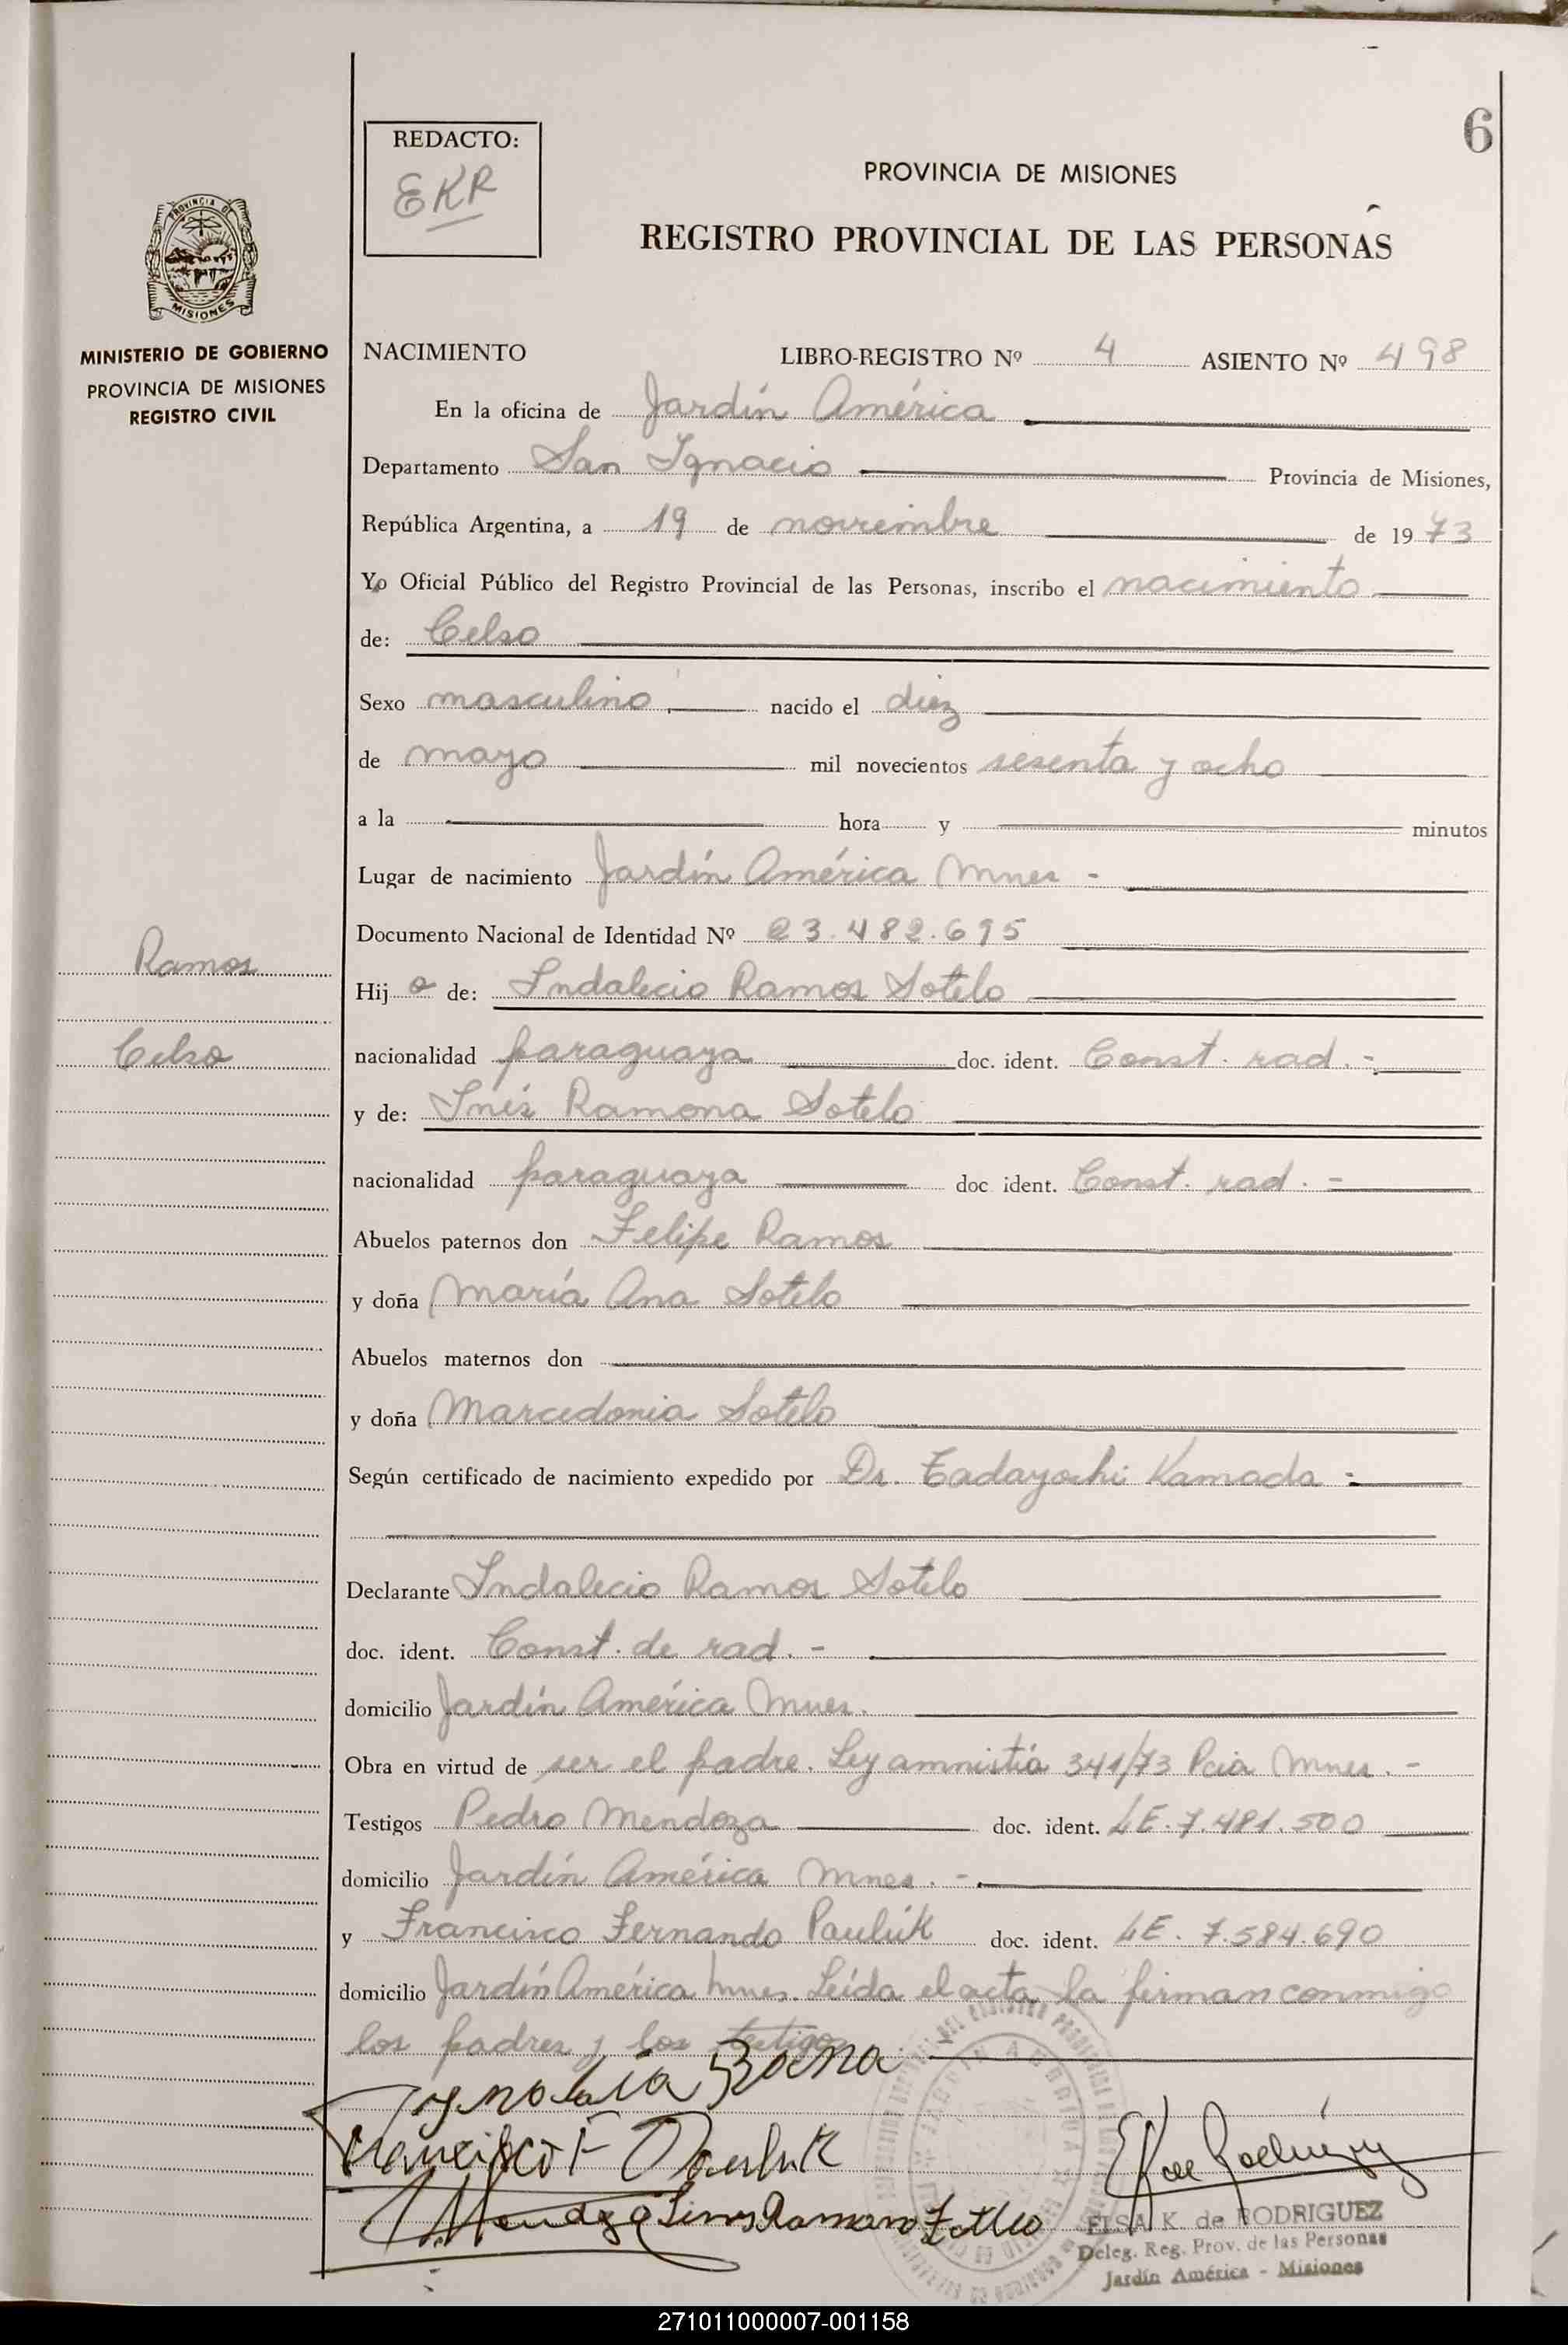 6
REDACTO:
EKR
PROVINCIA DE MISIONES
REGISTRO PROVINCIAL DE LAS PERSONAS
PROVINCIA DE
MISIONES
MINISTERIO DE GOBIERNO
PROVINCIA DE MISIONES
REGISTRO CIVIL
NACIMIENTO LIBRO-REGISTRO Nº 4 ASIENTO Nº 498
En la oficina de Jardín América
Departamento San Ignacio Provincia de Misiones,
República Argentina, a 19 de noviembre de 1973
Yo Oficial Público del Registro Provincial de las Personas, inscribo el nacimiento
de: Celso
Sexo masculino nacido el diez
de mayo mil novecientos sesenta y ocho
a la hora y minutos
Lugar de nacimiento Jardín América Mnes -
Documento Nacional de Identidad Nº 23.482.695
Ramos
Hijo de: Indalecio Ramos Sotelo
Celso
nacionalidad paraguaya doc. ident. Const. rad. -
y de: Inés Ramona Sotelo
nacionalidad paraguaya doc ident. Const. rad. -
Abuelos paternos don Felipe Ramos
y doña María Ana Sotelo
Abuelos maternos don
y doña Marcedonia Sotelo
Según certificado de nacimiento expedido por Dr. Tadayochi Kamada -
Declarante Indalecio Ramos Sotelo
doc. ident. Const. de rad. -
domicilio Jardín América Mnes.
Obra en virtud de ser el padre. Ley amnistía 341/73 Pcia Mnes. -
Testigos Pedro Mendoza doc. ident. LE. 7.481.500
domicilio Jardín América Mnes. -
y Francisco Fernando Pauluk doc. ident. LE. 7.584.690
domicilio Jardín América Mnes. Leída el acta la firman conmigo
los padres y los testigos -
Francisco F Pauluk
Mendoza
ELSA K. de RODRIGUEZ
Deleg. Reg. Prov. de las Personas
Jardín América - Misiones
271011000007-001158